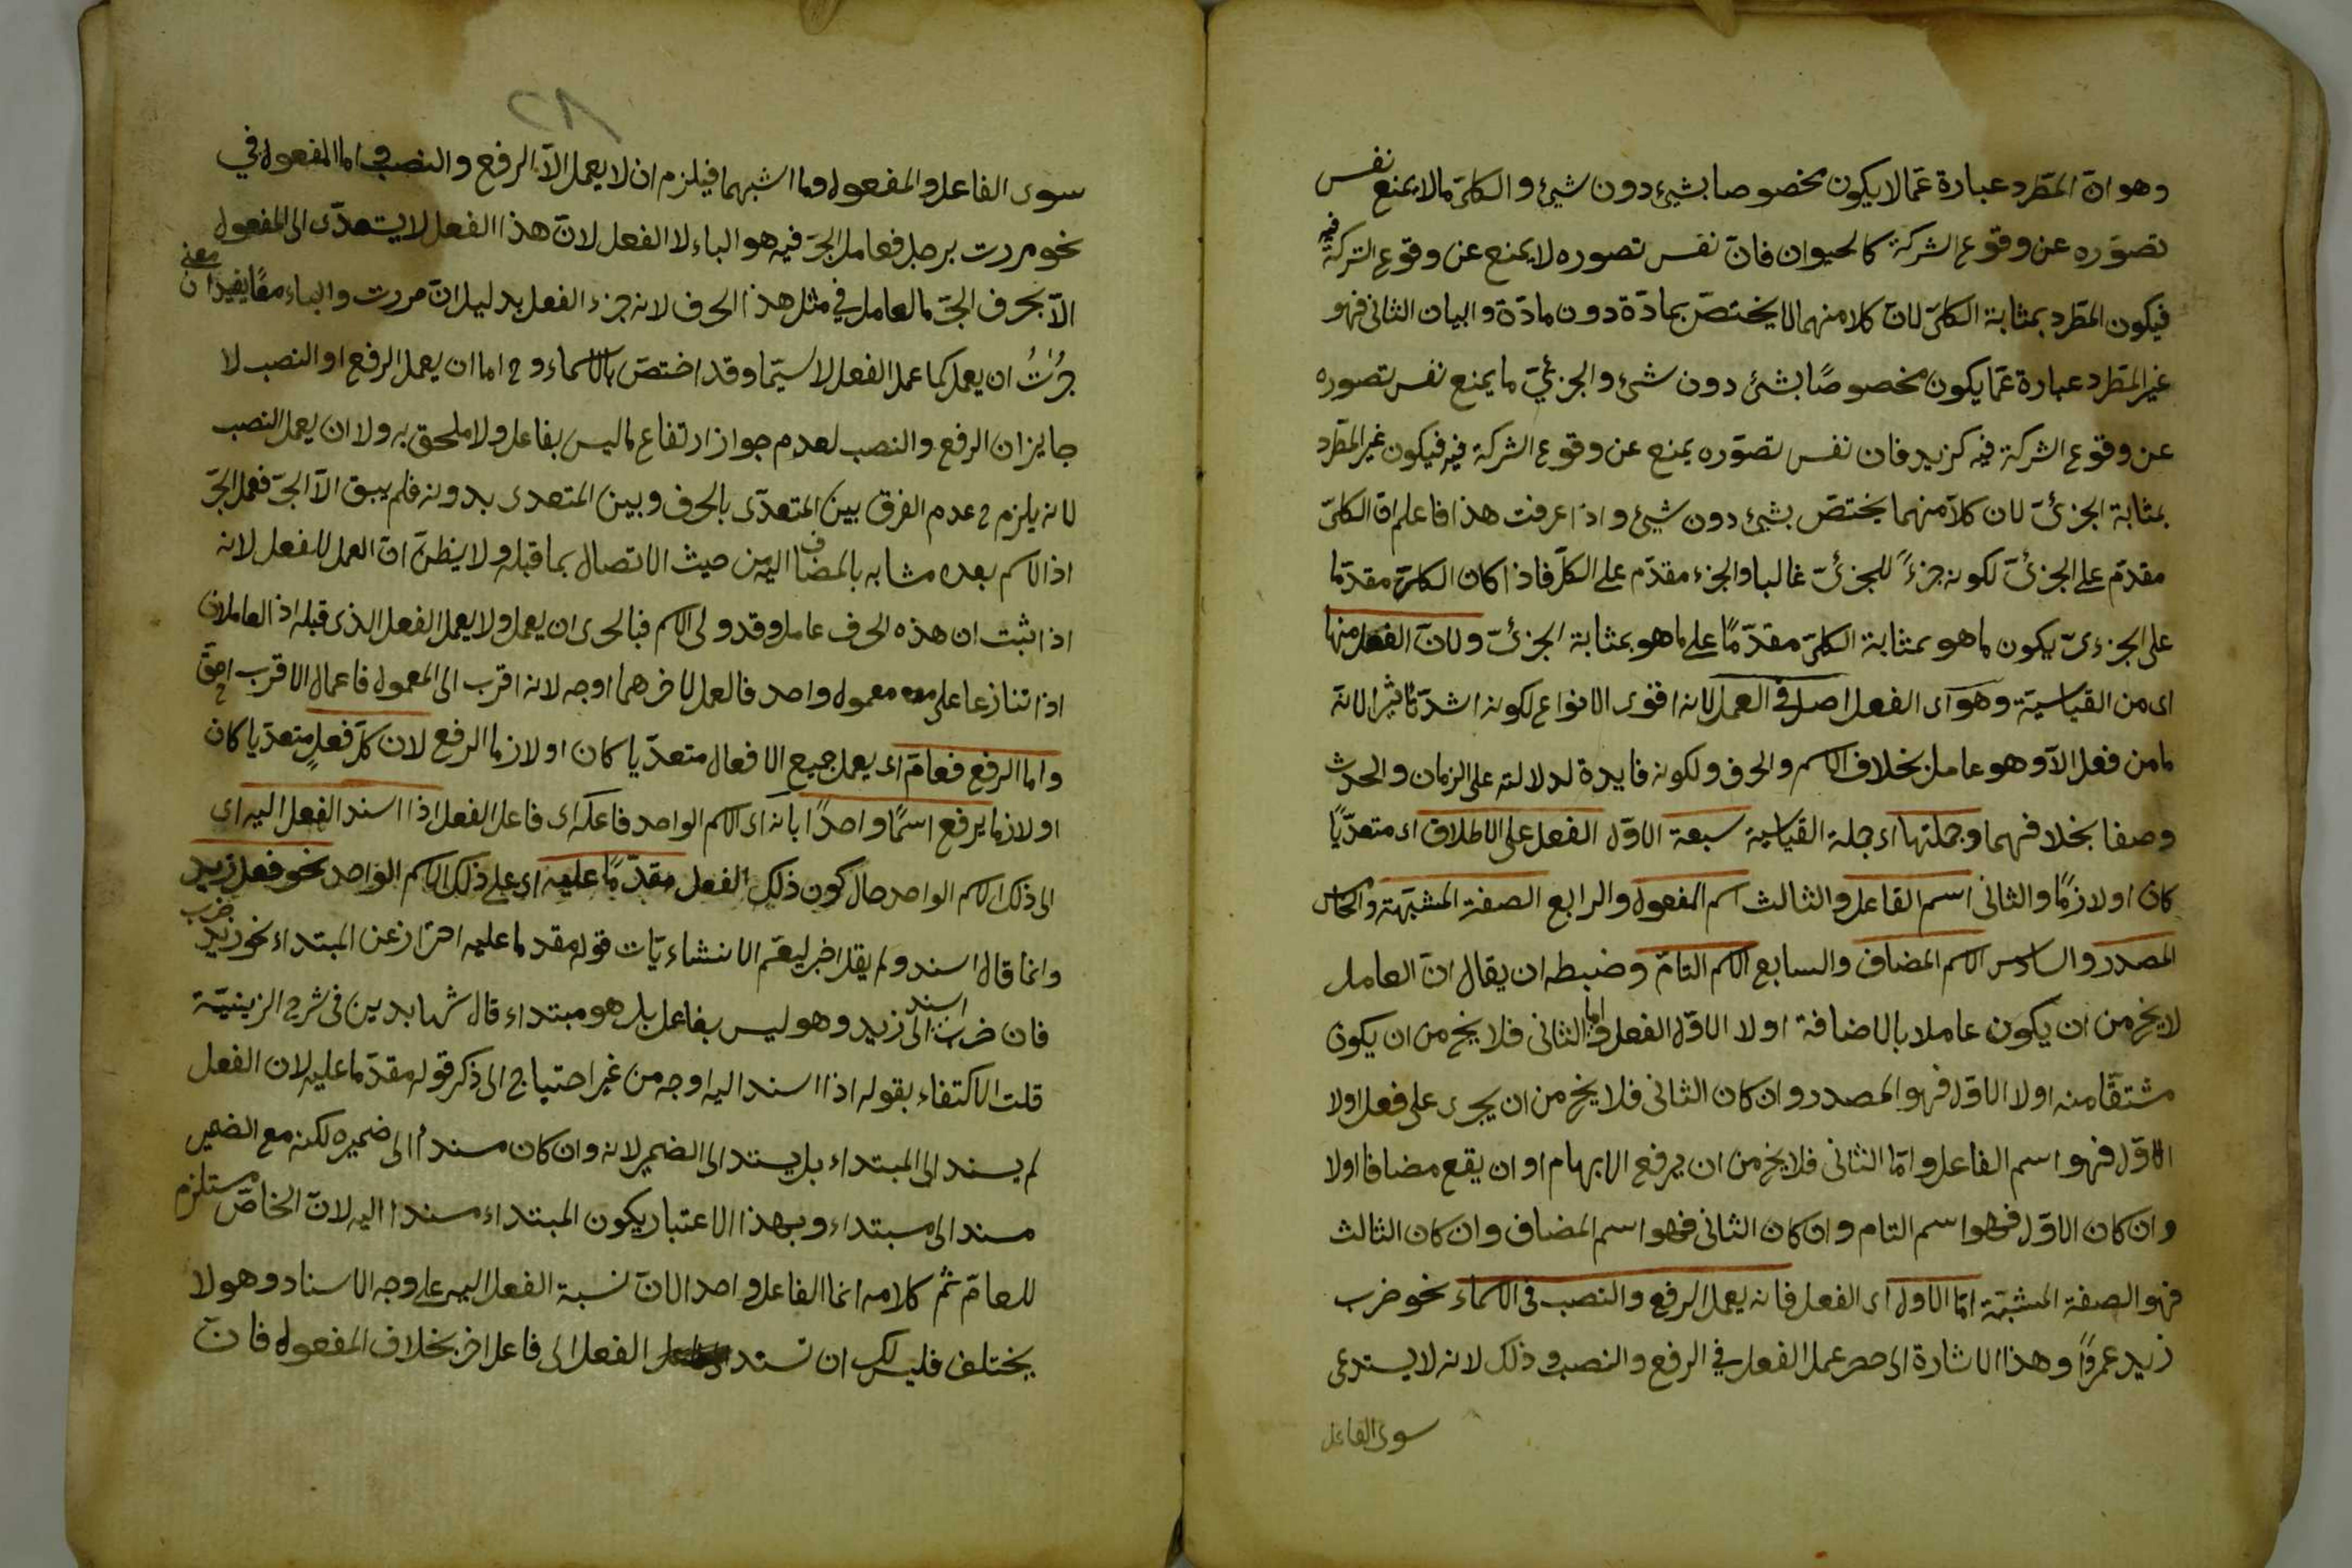 وهو انّ المطّرد عبارة عمّا لا يكون مخصوصا بشيء دون شيئ والكلىّ ما لا يمنع نفس
تصوّره عن وقوع الشركة كالحيوان فانّ نفس تصوره لا يمنع عن وقوع الشركة فيه
فيكون المطّرد بمثابة الكلىّ لانّ كلا منهما لا يختصّ بمادّة دون مادّة والبيان الثانى فهو
غير المطّرد عبارة عمّا يكون مخصوصًا بشئ دون شئ والجزئيّ ما يمنع نفس تصوره
عن وقوع الشركة فيه كزيد فان نفس تصوّره يمنع عن وقوع الشركة فيه فيكون غير المطّرد
بمثابة الجزئىّ لان كلاّ منهما يختصّ بشيء دون شيئ واذا عرفت هذا فاعلم انّ الكلىّ
مقدّم على الجزئىّ لكونه جزءً للجزئىّ غالبا والجزء مقدّم على الكلّ فاذا كان الكلىّ مقدّما
على الجزءىّ يكون ما هو بمثابة الكلىّ مقدّمًا على ما هو بمثابة الجزئىّ ولانّ الفعل منها
اى من القياسيّة وهو اى الفعل اصل فى العمل لانه اقوى الانواع لكونه اشدّ تأثيرا لانّه
ما من فعل الاّ وهو عامل بخلاف الاسم والحرف ولكونه فايدة لدلالته على الزمان والحدث
وصفا بخلافهما وجملتها اى جملة القياسية سبعة الاوّل الفعل على الاطلاق اى متعدّيًا
كان او لازمًا والثانى اسم الفاعل والثالث اسم المفعول والرابع الصفة المشبّهة والخامس
المصدر والسادس الاسم المضاف والسابع الاسم التامّ وضبطه ان يقال انّ العامل
لا يخ من ان يكون عاملا بالاضافة او لا الاوّل الفعل وامّا الثانى فلا يخ من ان يكون
مشتقّا منه او لا الاوّل فهو المصدر وان كان الثانى فلا يخ من ان يجرى على فعل او لا
الاوّل فهو اسم الفاعل وامّا الثانى فلا يخ من ان يرفع الابهام او ان يقع مضافا او لا
وان كان الاوّل فهو اسم التام وان كان الثانى فهو اسم المضاف وان كان الثالث
فهو الصفة المشبّهة امّا الاول اى الفعل فانه يعمل الرفع والنصب فى الاسماء نحو ضرب
زيد عمرًوا وهذا الاشارة الى حصر عمل الفعل في الرفع والنصب وذلك لانه لا يستدعى
سوى الفاعل
سوى الفاعل والمفعول وما اشبههما فيلزم ان لا يعمل الاّ الرفع والنصب اما المفعول في
نحو مررت برجل فعامل الجرّ فيه هو الباء لا الفعل لانّ هذا الفعل لا يتعدّى الى المفعول
الاّ بحرف الجرّ فالعامل في مثل هذا الحرف لانه جزء الفعل بدليل انّ مررت والباء معًا يفيدان معنى
جزت ان يعمل كما عمل الفعل لا سيّما وقد اختصّ بالاسماء وح اما ان يعمل الرفع او النصب لا
جايز ان الرفع والنصب لعدم جواز ارتفاع ما ليس بفاعل ولا ملحق به ولا ان يعمل النصب
لانه يلزم ح عدم الفرق بين المتعدّى بالحرف وبين المتعدى بدونه فلم يبق الاّ الجرّ فعمل الجرّ
اذ الاسم بعده مشابه بالمضاف اليه من حيث الاتصال بما قبله ولا يظنّ انّ العمل للفعل لانه
اذا ثبت ان هذه الحرف عامل وقد ولى الاسم فبالحرى ان يعمل ولا يعمل الفعل الذى قبله اذ العاملان
اذا تنازعا على معمول واحد فالعمل لاخرهما اوجه لانه اقرب الى المعمول فاعمال الاقرب احقّ
واما الرفع فعامّ اى يعمل جميع الافعال متعدّيا كان او لازما الرفع لان كلّ فعلٍ متعدّيا كان
او لازما يرفع اسمًا واحدًا بانه اى الاسم الواحد فاعله اى فاعل الفعل اذا اسند الفعل اليه اى
الى ذلك الاسم الواحد حال كون ذلك الفعل مقدّمًا عليه اى على ذلك الاسم الواحد نحو فعل زيد
وانما قال اسند ولم يقل اخبر ليعمّ الانشاءيّات قوله مقدما عليه احتراز عن المبتداء نحو زيد ضرب
فان ضرب اسند الى زيد وهو ليس بفاعل بل هو مبتداء قال شهابدين فى شرح الزينيّة
قلت الاكتفاء بقوله اذا اسند اليه اوجه من غير احتياج الى ذكر قوله مقدّما عليه لان الفعل
لم يسند الى المبتداء بل يسند الى الضمير لانه وان كان مسندا الى ضميره لكنه مع الضمير
مسند الى مبتداء وبهذا الاعتبار يكون المبتداء مسندا اليه لانّ الخاصّ مستلزم
للعامّ ثم كلامه انما الفاعل واحد لانّ نسبة الفعل اليه على وجه الاسناد وهو لا
يختلف فليس لك ان تسند الفعل الى فاعل اخر بخلاف المفعول فانّ